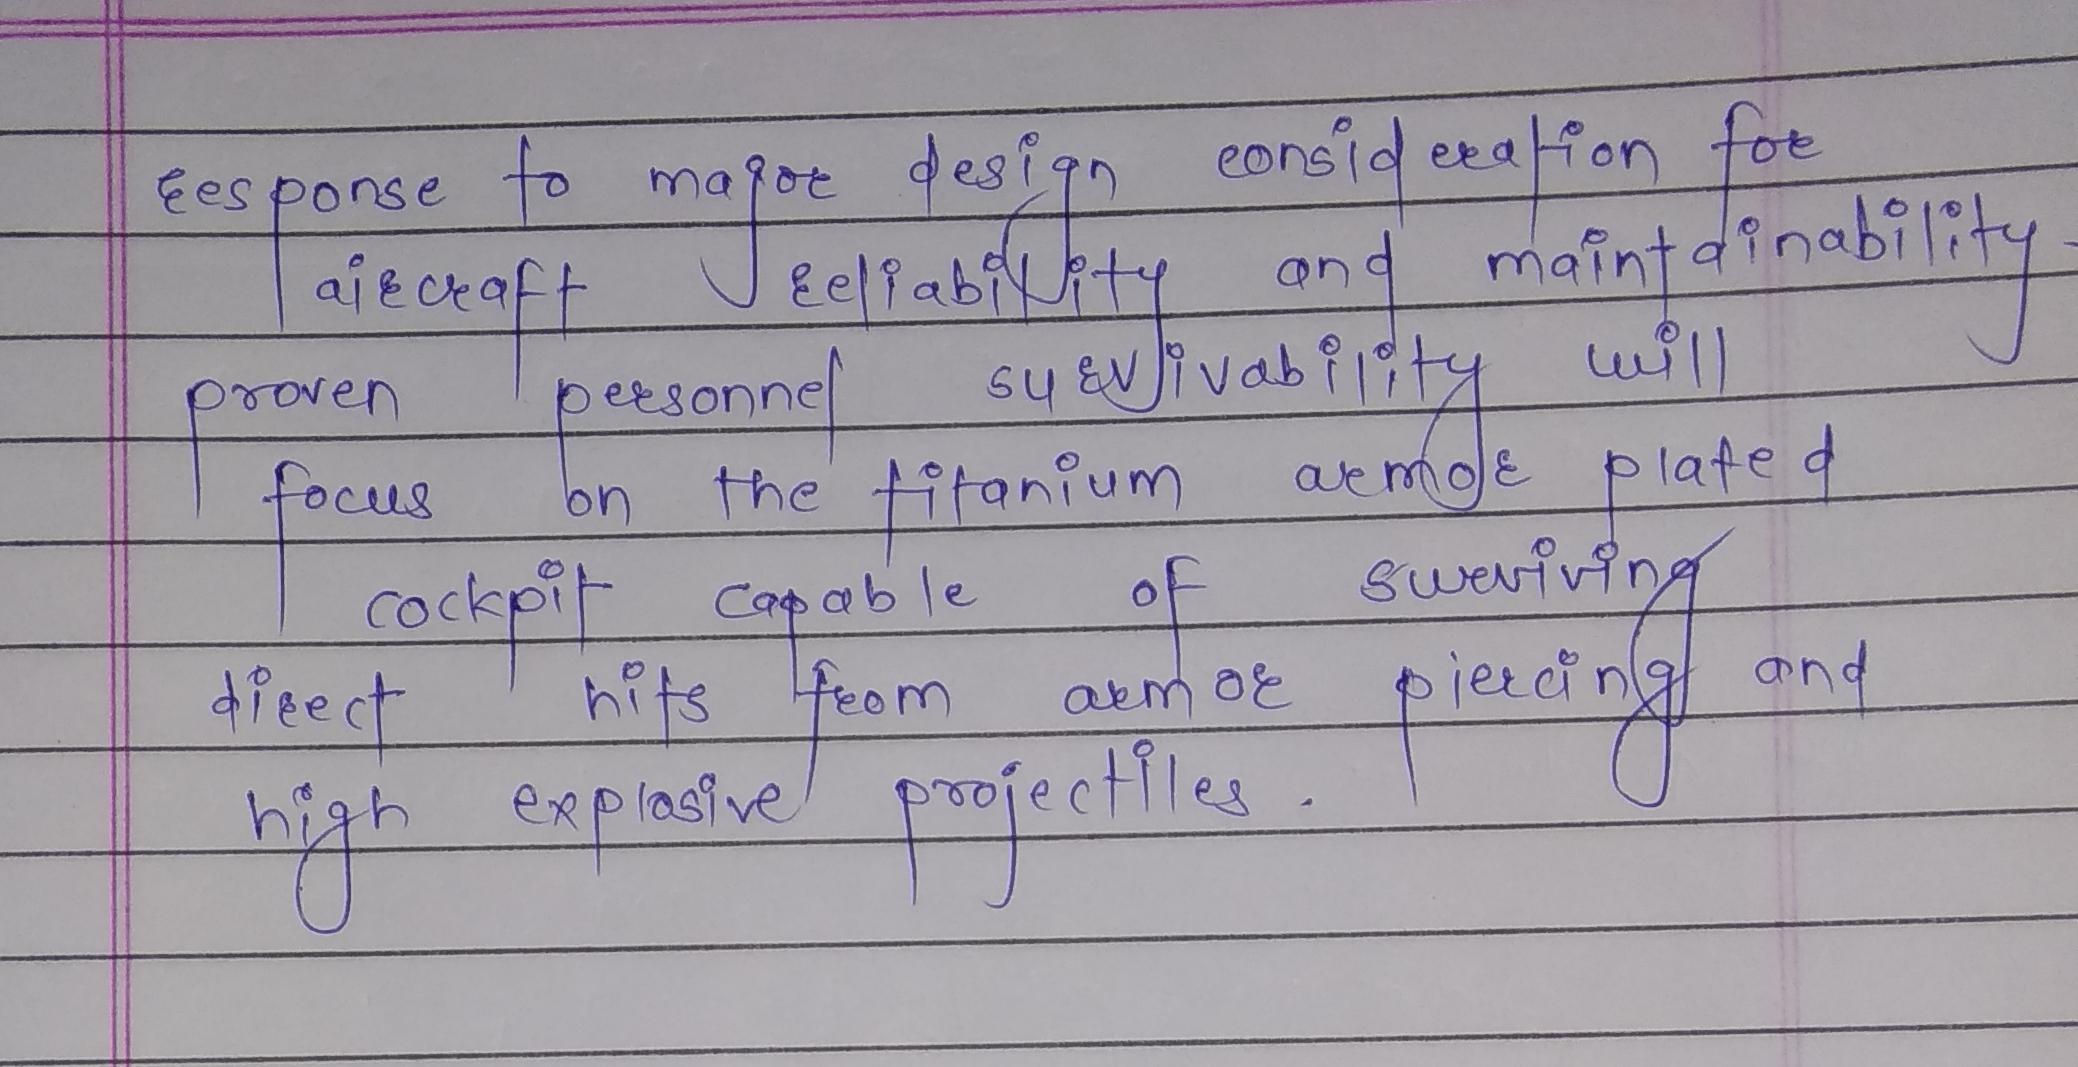 response to major design consideration for
aircraft reliability and maintainability.
proven personnel survivability will
focus on the titanium armor plated
cockpit capable of surviving
direct hits from armor piercing and
high explosive projectiles.